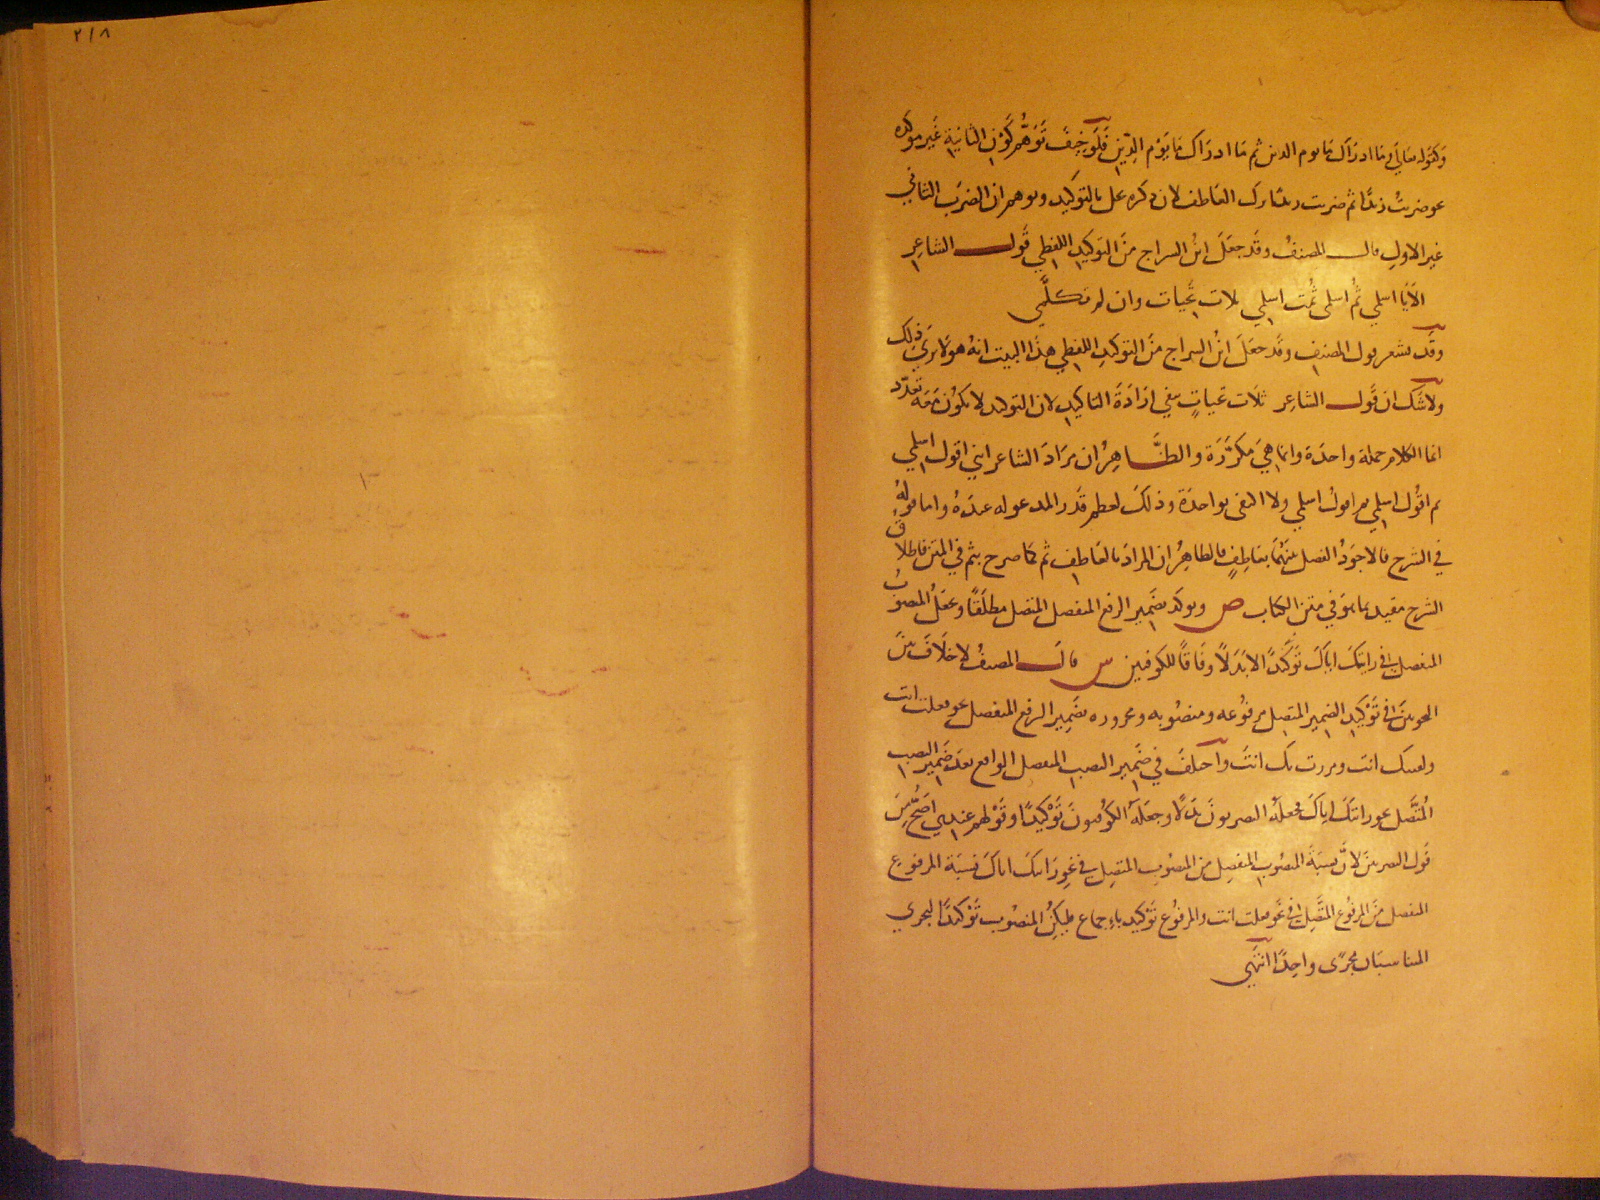 وكقوله تعالى وما ادراك ما يوم الدين ثم ما ادراك ما يوم الدين فلو خيف توهم كون الثانية غير موكده
نحو ضربت زيدا ثم ضربت زيدا ترك العاطف لان ذكره يخل بالتوكيد ويوهم ان الضرب الثاني
غير الاول قال المصنف وقد جعل ابن السراج من التوكيد اللفظي قول الشاعر
الا يا اسلمي ثم اسلمي ثمت اسلمي ثلاث تحيات وان لم تكلمي
وقد يشعر قول المصنف وقد جعل ابن السراج من التوكيد اللفظي هذا البيت انه هو لا يرى ذلك
ولا شك ان قول الشاعر ثلاث تحيات ينفي ارادة التاكيد لان التوكيد لا يكون معه تعدد
انما الكلام جملة واحدة وانما هي مكررة والظاهر ان مراد الشاعر انني اقول اسلمي
ثم اقول اسلمي ثم اقول اسلمي ولا اكتفي بواحدة وذلك لعظم قدر المدعو له عنده واما قوله
في الشرح فالاجود الفصل بينهما بعاطف فالظاهر ان المراد بالعاطف ثم كما صرح بثم في المتن فاطلاق
الشرح مقيد بما هو في متن الكتاب ص ويوكد بضمير الرفع المنفصل المتصل مطلقا ويجعل المنصوب
المنفصل في رايتك اياك توكيدا لا بدلا وفاقا للكوفيين س قال المصنف لا خلاف بين
النحويين في توكيد الضمير المتصل مرفوعه ومنصوبه ومجروره بضمير الرفع المنفصل نحو فعلت انت
ولقيتك انت ومررت بك انت واختلف في ضمير النصب المنفصل الواقع بعد ضمير النصب
المتصل نحو رايتك اياك فجعله البصريون بدلا وجعله الكوفيون توكيدا وقولهم عندي اصح من
قول البصريين لان نسبة المنصوب المنفصل من المنصوب المتصل في نحو رايتك اياك نسبة المرفوع
المنفصل من المرفوع المتصل في نحو فعلت انت والمرفوع توكيد باجماع فليكن المنصوب توكيدا ليجري
المتناسبان مجرى واحدا انتهى
٢١٨